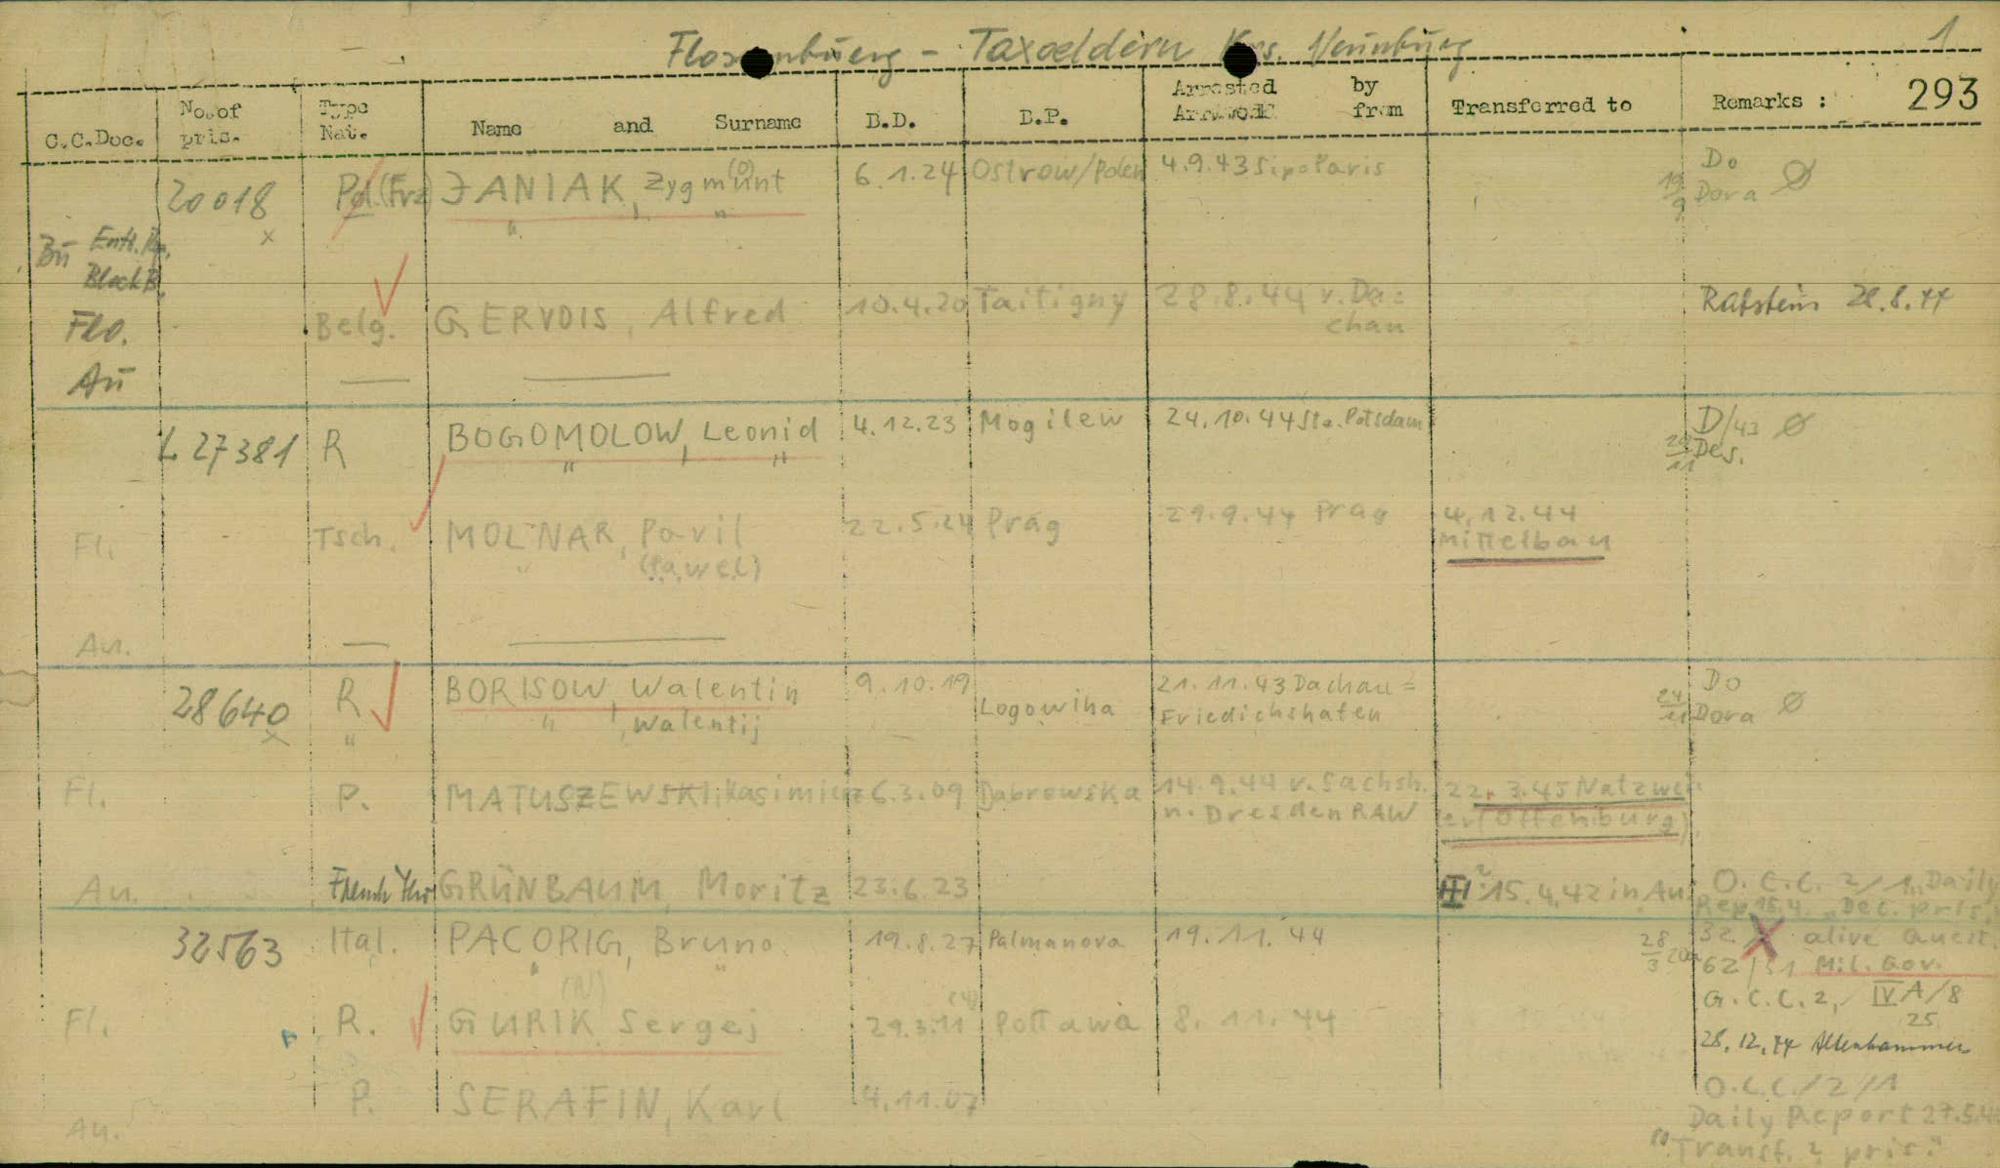 Flossenbuerg - Taxoeldern Krs. Neunburg 1
C.C.Doc. No. of pris. Type Nat. Name and Surname B.D. B.P. Arrested by from Transferred to Remarks : 293
20018 Pol. (Frz) JANIAK, Zygm(o)unt 6.1.24 Ostrow/Polen 4.9.43 Sipo Paris 19/9 Do Dora Ø
x " "
Bu Block B.
Flo. Belg. GERVOIS, Alfred 10.4.20 Taitigny 28.8.44 v. Da= Rabstein 28.8.44
chau
Au — —
L 27381 R BOGOMOLOW, Leonid 4.12.23 Mogilew 24.10.44 Sta. Potsdam D/43 Ø
" " Des.
Fl. - Tsch. MOLNAR, Pavil 22.5.24 Prag 29.9.44 Prag 4.12.44
" (Pawel) Mittelbau
Au. — —
28640 R BORISOW, Walentin 9.10.19 Logowiha 21.11.43 Dachau= 24/11 Do Ø
x " " , Walentij Friedichshafen Dora
Fl. P. MATUSZEWSKI, Kasimierz 6.3.09 Dabrowska 14.9.44 v. Sachsh. 22.3.45 Natzwei
n. Dresden RAW ler (Offenburg)
Au. GRÜNBAUM, Moritz 23.6.23 15.4.42 in Au. O.C.C. 2/1 Daily
Rep 15.4. "Dec. pris."
32563 Ital. PACORIG, Bruno 19.8.27 Palmanova 19.11.44 28/3 32 X alive Quest.
" " 62/31 Mil. Gov.
(N) (4) G.C.C. 2, / IV A/8
Fl. R. GURIK Sergej 29.3.11 Poltawa 8.11.44 25
28.12.44 Altenhammer
P. SERAFIN, Karl 4.11.07 O.C.C./2/1
Au. Daily Report 27.5.4
"Transf. 2 pris."